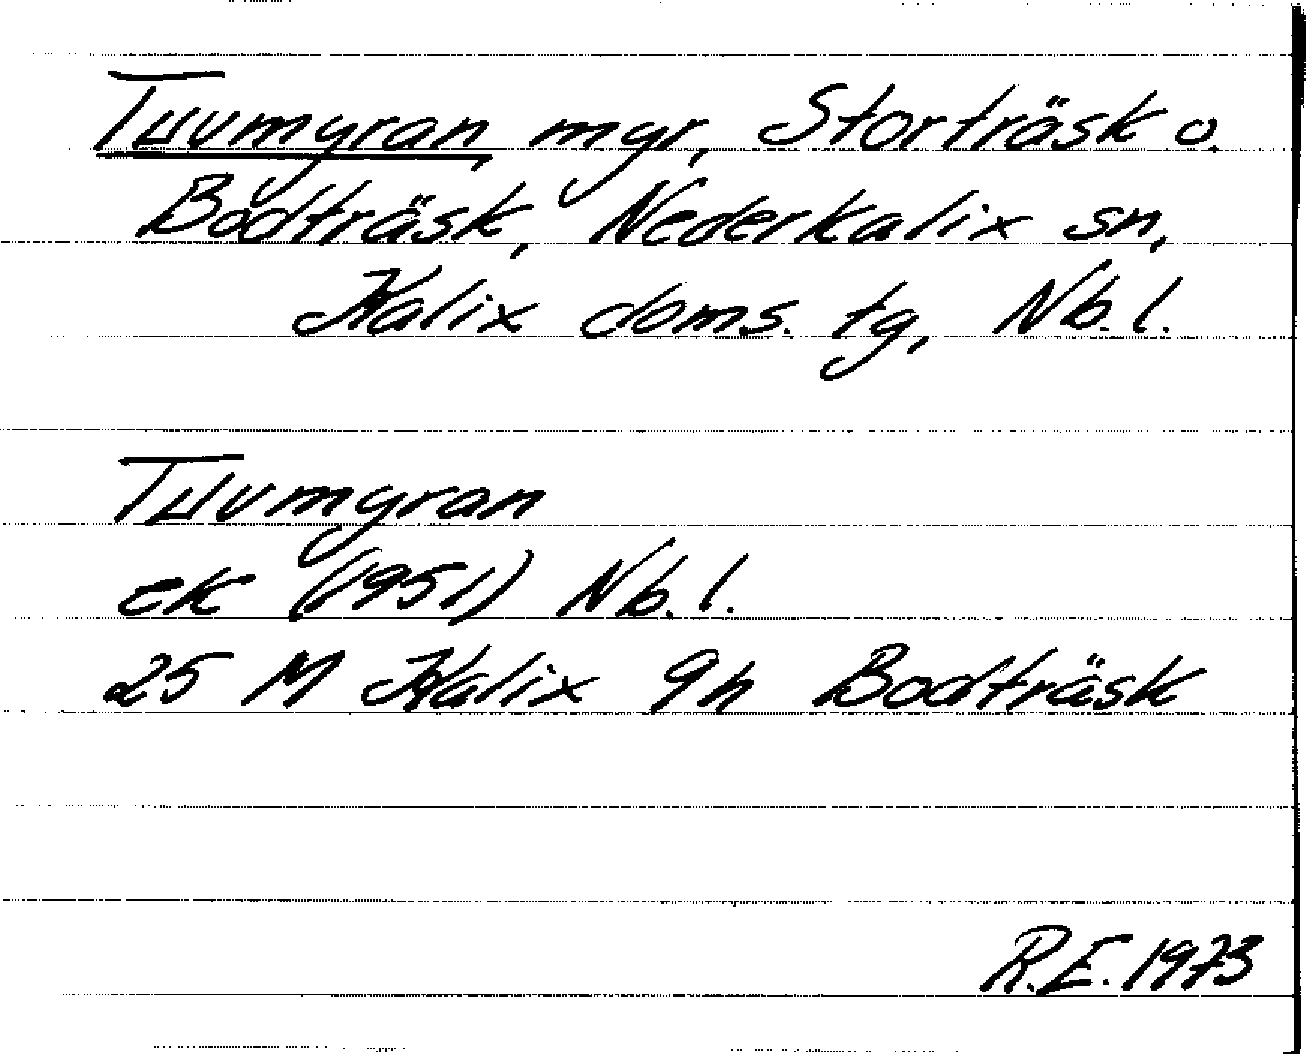 Tuvmyran, myr, Storträsk o.
Bodträsk, Nederkalix sn,
Kalix doms. tg, Nb. l.
Tuvmyran
ek (1951) Nb. l.
25 M Kalix 9h Bodträsk
R.E. 1973